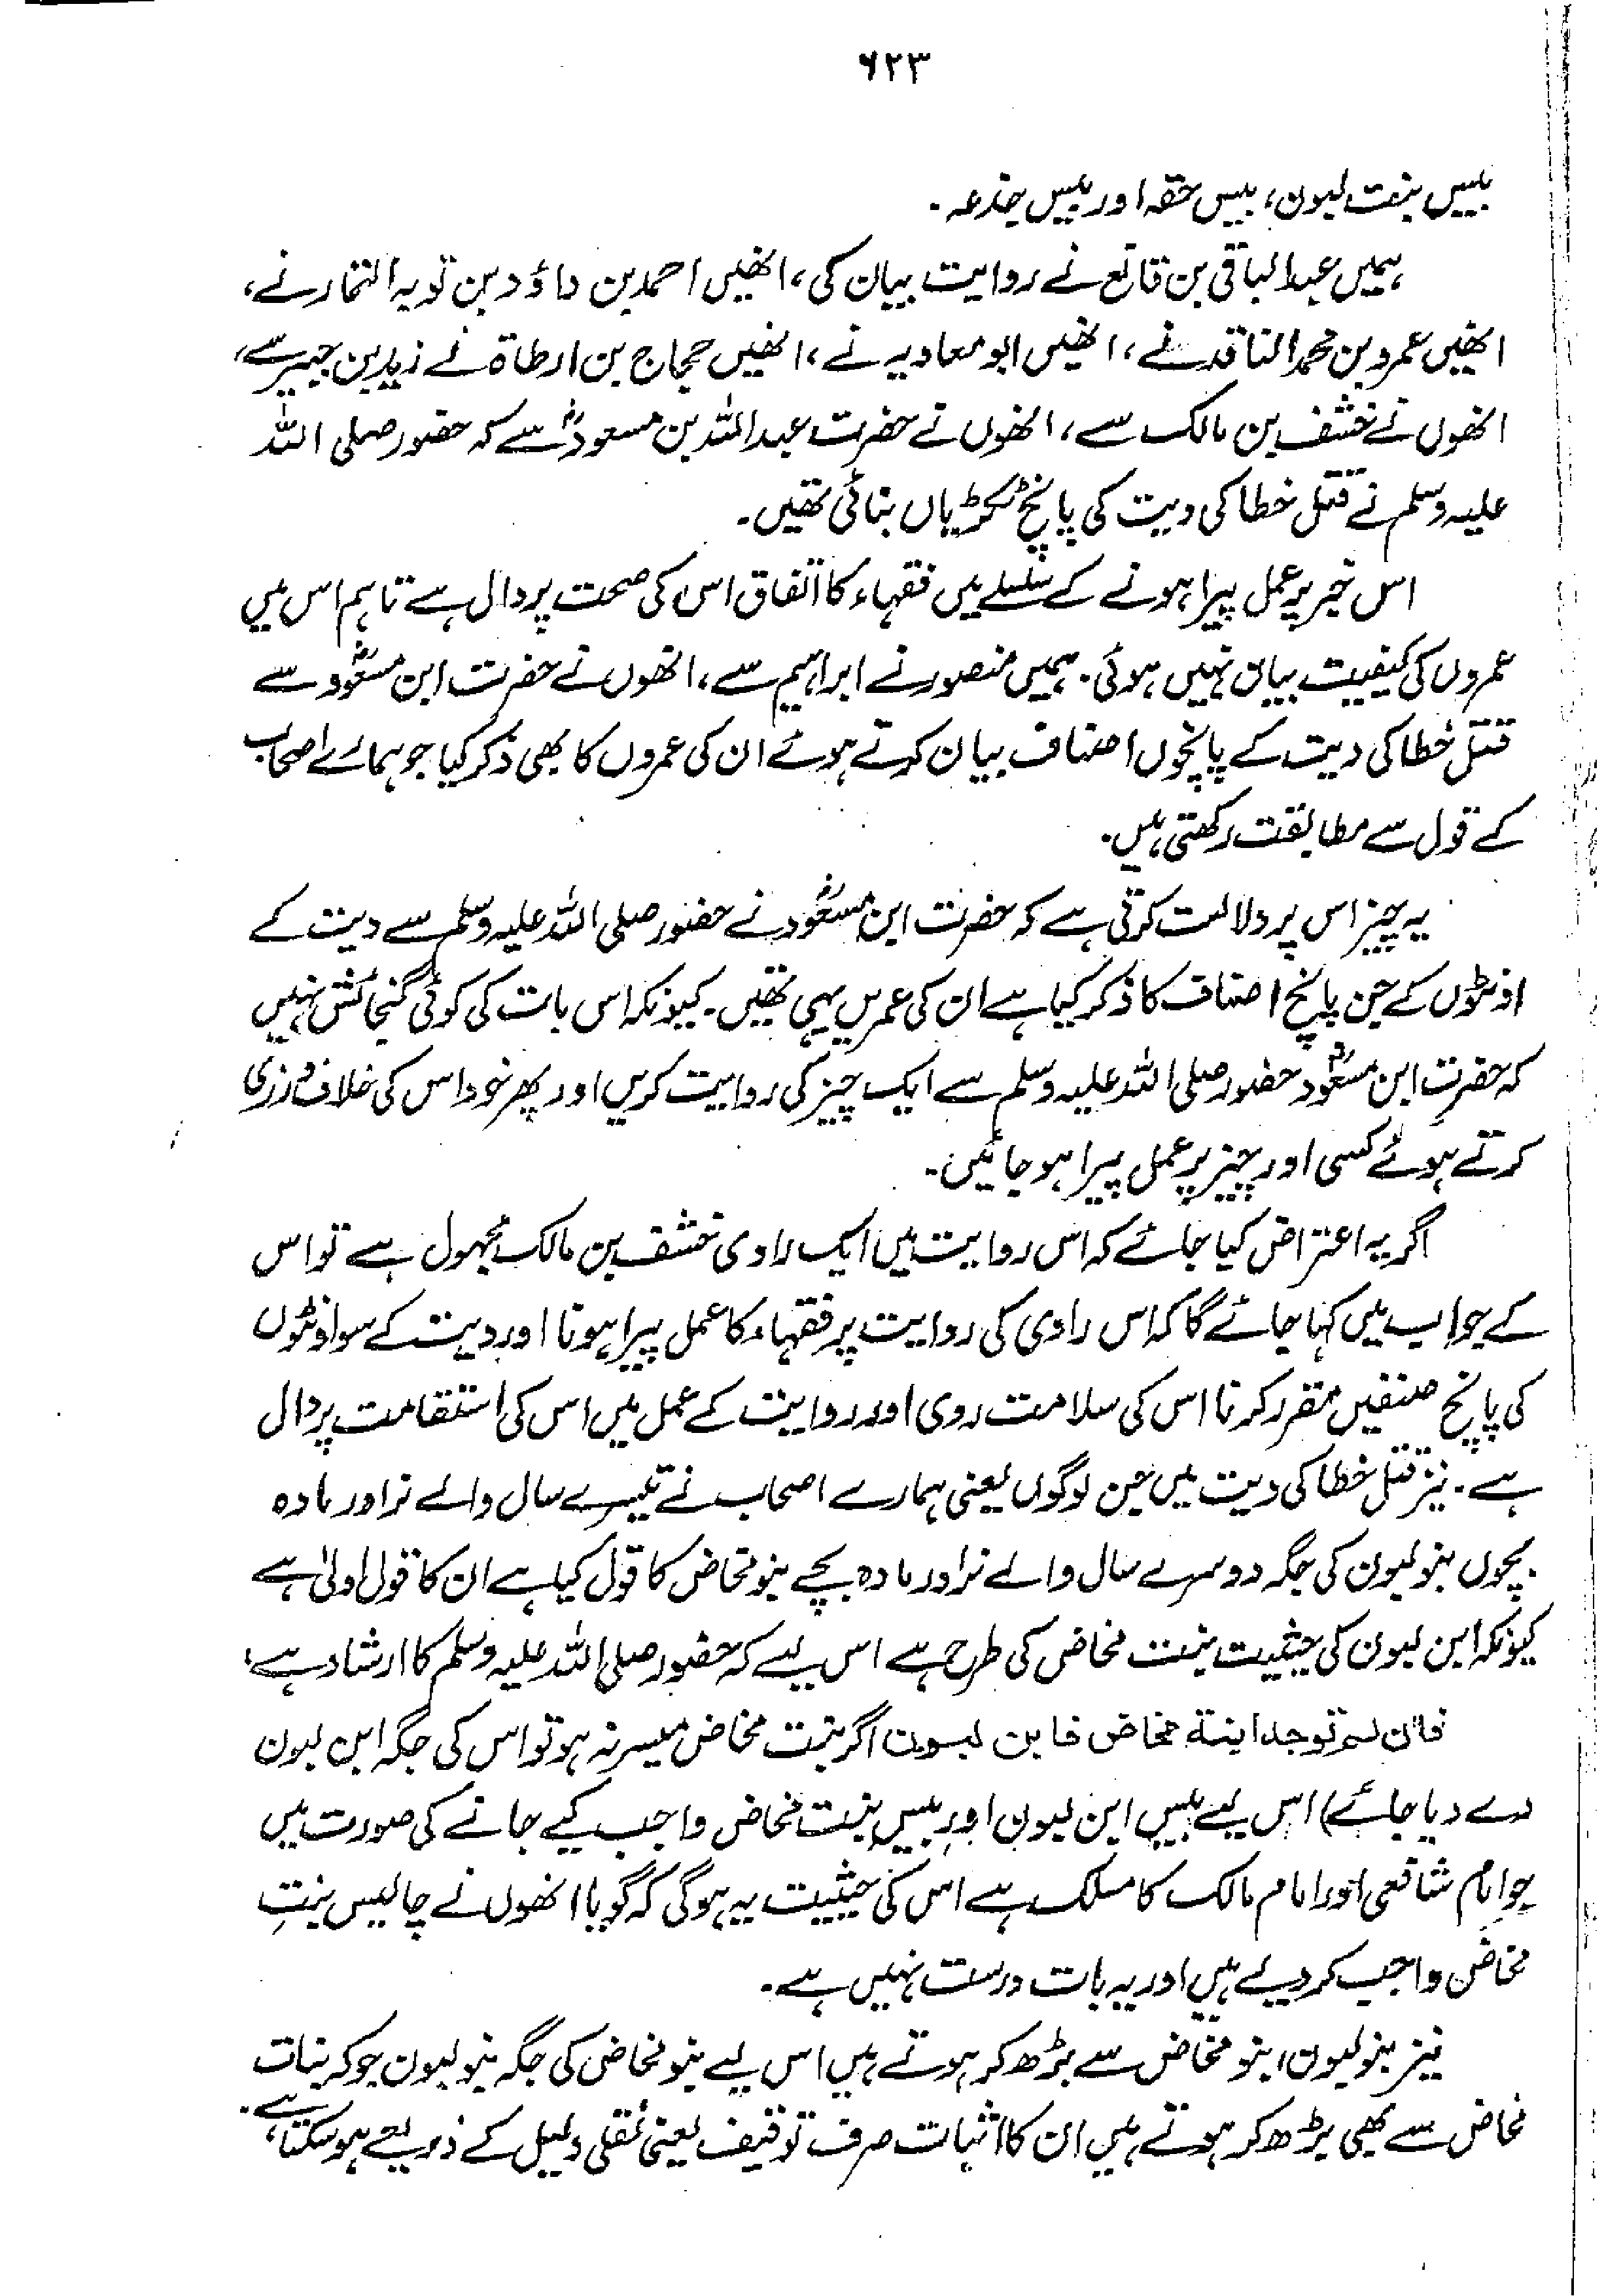 ۶۲۳
بیس بنت لبون، بیس حقہ اور بیس جذعہ۔
ہمیں عبدالباقی بن قانع نے روایت بیان کی، انھیں احمد بن داؤد بن توبہ التمار نے،
انھیں عمرو بن محمد الناقد نے، انھیں ابو معاویہ نے، انھیں حجاج بن ارطاۃ نے زید بن جبیر سے،
انھوں نے خشف بن مالک سے، انھوں نے حضرت عبداللہ بن مسعودؓ سے کہ حضور صلی اللہ
علیہ وسلم نے قتل خطا کی دیت کی پانچ ٹکڑیاں بنائی تھیں۔
اس خبر پر عمل پیرا ہونے کے سلسلے میں فقہاء کا اتفاق اس کی صحت پر دال ہے تاہم اس میں
عمروں کی کیفیت بیان نہیں ہوئی۔ ہمیں منصور نے ابراہیم سے، انھوں نے حضرت ابن مسعودؓ سے
قتل خطا کی دیت کے پانچوں اصناف بیان کرتے ہوئے ان کی عمروں کا بھی ذکر کیا جو ہمارے اصحاب
کے قول سے مطابقت رکھتی ہیں۔
یہ چیز اس پر دلالت کرتی ہے کہ حضرت ابن مسعودؓ نے حضور صلی اللہ علیہ وسلم سے دیت کے
اونٹوں کے جن پانچ اصناف کا ذکر کیا ہے ان کی عمریں یہی تھیں۔ کیونکہ اس بات کی کوئی گنجائش نہیں
کہ حضرت ابن مسعودؓ حضور صلی اللہ علیہ وسلم سے ایک چیز کی روایت کریں اور پھر خود اس کی خلاف ورزی
کرتے ہوئے کسی اور چیز پر عمل پیرا ہو جائیں۔
اگر یہ اعتراض کیا جائے کہ اس روایت میں ایک راوی خشف بن مالک مجہول ہے تو اس
کے جواب میں کہا جائے گا کہ اس راوی کی روایت پر فقہاء کا عمل پیرا ہونا اور دیت کے سو اونٹوں
کی پانچ صنفیں مقرر کرنا اس کی سلامت روی اور روایت کے عمل میں اس کی استقامت پر دال
ہے۔ نیز قتل خطا کی دیت میں جن لوگوں یعنی ہمارے اصحاب نے تیسرے سال والے نر اور مادہ
بچوں بنو لبون کی جگہ دوسرے سال والے نر اور مادہ بچے بنو مخاض کا قول کیا ہے ان کا قول اولیٰ ہے
کیونکہ ابن لبون کی حیثیت بنت مخاض کی طرح ہے اس لیے کہ حضور صلی اللہ علیہ وسلم کا ارشاد ہے،
فان لم توجد ابنة مخاض فابن لبون اگر بنت مخاض میسر نہ ہو تو اس کی جگہ ابن لبون
دے دیا جائے) اس لیے بیس ابن لبون اور بیس بنت مخاض واجب کیے جانے کی صورت میں
جو امام شافعی اور امام مالک کا مسلک ہے اس کی حیثیت یہ ہوگی کہ گویا انھوں نے چالیس بنتِ
مخاض واجب کر دیے ہیں اور یہ بات درست نہیں ہے۔
نیز بنو لبون، بنو مخاض سے بڑھ کر ہوتے ہیں اس لیے بنو مخاض کی جگہ بنو لبون جو کہ بنات
مخاض سے بھی بڑھ کر ہوتے ہیں ان کا اثبات صرف توقیف یعنی نقلی دلیل کے ذریعے ہو سکتا ہے۔